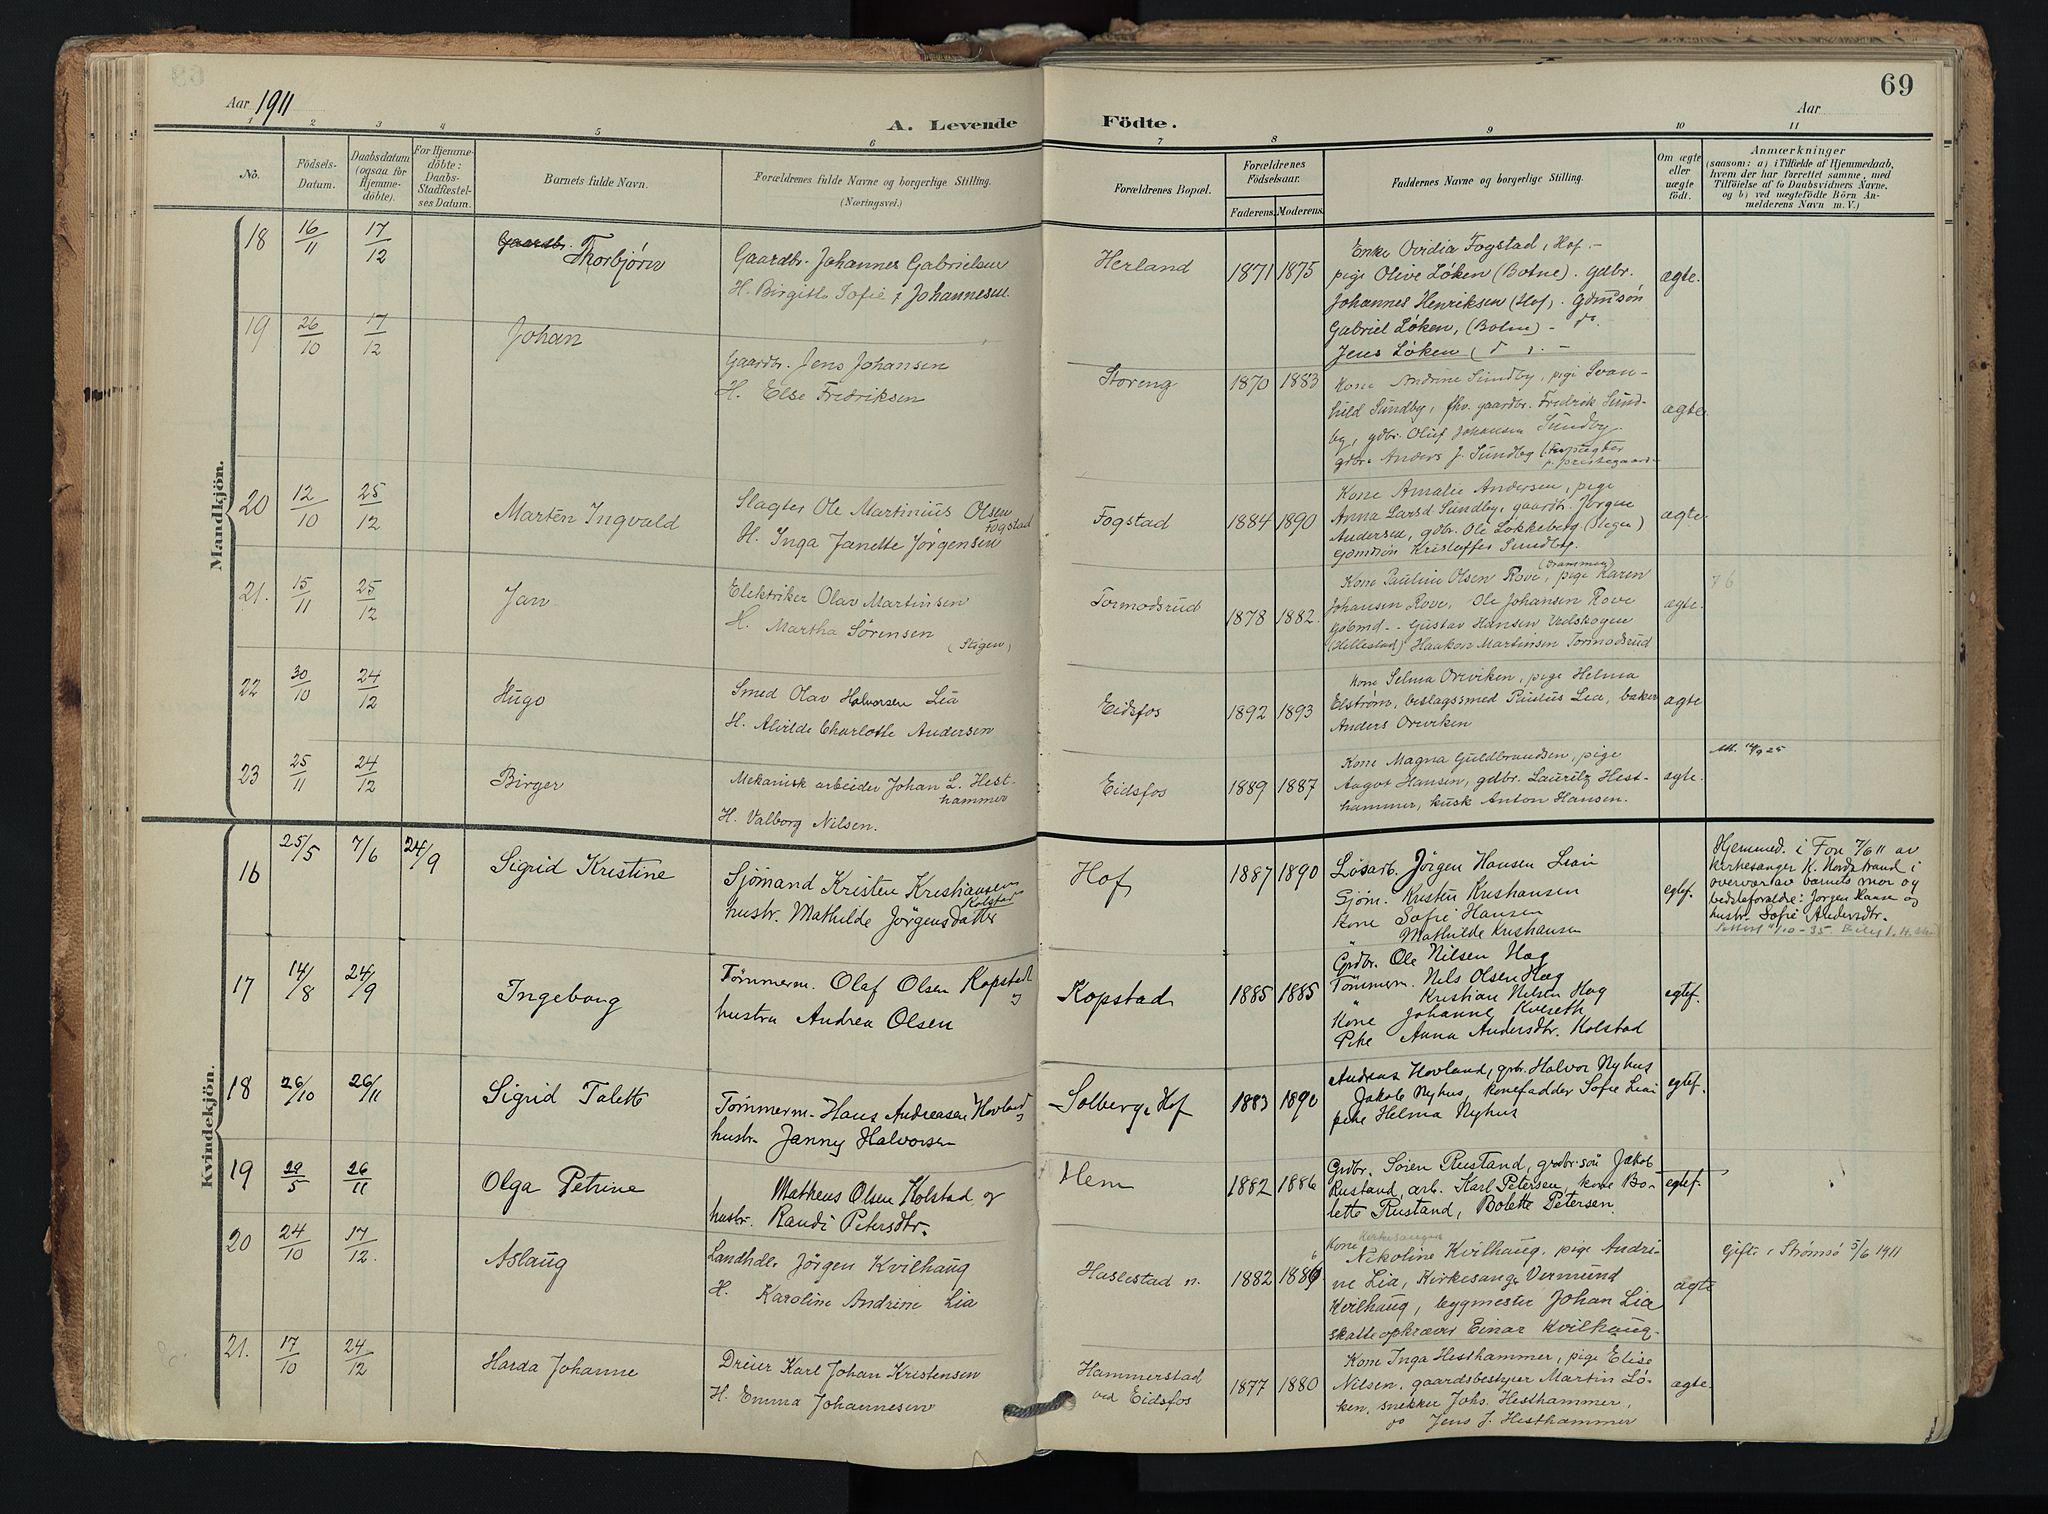 69
Aar 1911
Aar
A. Levende
Födte.
1 2 3 4 5 6 7 8 9 10 11
No.
Födsels-
Datum.
Daabsdatum
(ogsaa for
Hjemme-
döbte).
For Hjemme-
döbte:
Daabs-
Stadfæstel-
ses Datum.
Barnets fulde Navn.
Forældrenes fulde Navne og borgerlige Stilling.
(Næringsvei.)
Forældrenes Bopæl.
Forældrenes
Födselsaar.
Faderens.
Moderens.
Faddernes Navne og borgerlige Stilling.
Om ægte
eller
uægte
födt.
Anmærkninger
(saasom: a) i Tilfælde af Hjemmedaab,
hvem der har forrettet samme, med
Tilföielse af to Daabsvidners Navne,
og b) ved uægtefödte Börn An-
melderens Navn m. V.)
Mandkjön.
18 16/11 17/12 Gaardbr. Thorbjörn
Gaardbr. Johannes Gabrielsen
H. Birgitte Sofie Johannesen.
Herland 1871 1875
Enke Ovidia Fogstad, Hof. -
pige Olive Løken (Botne). gdbr.
Johannes Henriksen (Hof). Gdmsøn
Gabriel Løken, (Botne) - do.
Jens Løken
ægte.
19 26/10 17/12 Johan
Gaardbr. Jens Johansen
H. Else Fredriksen
Storeng 1870 1883
Kone Andrine Sundby, pige Svan-
hild Sundby, fhv. gaardbr. Fredrik Sund-
by, gdbr. Oluf Johansen Sundby.
gdbr. Anders J. Sundby
ægte.
20 12/10 25/12 Marten Ingvald
Slagter Ole Martinius Olsen
Fogstad
H. Inga Janette Jørgensen
Fogstad 1884 1890
Kone Amalie Andersen, pige
Anna Larsd Sundby, gaardbr. Jørgen
Andersen, gdbr. Ole Løkkeberg
Kristoffer Sundby.
ægte.
21. 15/11 25/12 Jan
Elektriker Olav Martinsen
H. Martha Sørensen
(Stigen)
Tormodsrud 1878 1882.
(Drammen)
Kone Pauline Olsen Rove, pige Karen
Johansen Rove, Ole Johansen Rove
Gustav Hansen Vedskogen
(Hillestad) Haakon Martinsen Tormodsrud
ægte.
76
22 30/10 24/12 Hugo
Smed Olav Halvorsen Lia
H. Alvilde Charlotte Andersen
Eidsfos 1892 1893
Kone Selma Orviken, pige Helma
Elstrøm, beslagssmed Paulus Lia, baker
Anders Orviken
ægte
23 25/11 24/12 Birger
Mekanisk arbeider Johan L. Hest-
hammer
H. Valborg Nilsen.
Eidsfos 1889 1887
Kone Magna Guldbrandsen, pige
Aagot Hansen, gdbr. Lauritz Hest-
hammer, kusk Anton Hansen.
ægte.
Kvindekjön.
16 25/5 7/6 24/9 Sigrid Kristine
Sjömand Kristen Kristiansen
Kolstad
hustr. Mathilde Jörgensdatter
Hof 1887 1890
Løsarb. Jörgen Hansen Liai
Sjöm. Kristen Kristiansen
Kone Sofie Hansen
Mathilde Kristiansen
egtef.
Hjemmed. i Fon 7/6 11 av
kirkesanger K. Nordstrand i
overvær av barnets mor og
bedsteforældre: Jørgen Hansen og
hustr. Sofie Andersdtr.
17 14/8 24/9 Ingeborg
Tömmerm. Olaf Olsen Kopstad
hustru Andrea Olsen
Kopstad 1885 1885
Grdbr. Ole Nilsen Hag
Tömmerm. Nils Olsen Hag
" Kristian Nilsen Hag
Kone Johanne Kviseth
Pike Anna Andersdtr. Kolstad
egtef.
18 26/10 26/11 Sigrid Talette
Tömmerm. Hans Andreasen Hovland
hustr. Janny Halvorsen
Solberg, Hof 1883 1890
Andreas Hovland, grbr. Halvor Nyhus
Jakob Nyhus, konefadder Sofie Liai
pike Helma Nyhus
egtef.
19 29/5 26/11 Olga Petrine
Matheus Olsen Kolstad og
hustr. Randi Petersdtr.
Hem 1882 1886
Grdbr. Sören Rustand, grdbr.sön Jakob
Rustand, arb. Karl Petersen, kone Bo-
lette Rustand, Bolette Petersen.
egtef.
20 24/10 17/12. Aslaug
Landhdl. Jörgen Kvilhaug
H. Karoline Andrine Lia
Haslestad n. 1882 1886
Kone Kirkesanger
Nikoline Kvilhaug, pige Andri-
ne Lia, Kirkesang. Vermund
Kvilhaug, bygmester Johan Lia
skatteopkræver Einar Kvilhaug.
ægte
Gift i Strømsö 5/6 1911
21. 17/10 24/12 Harda Johanne
Dreier Karl Johan Kristensen
H. Emma Johannesen
Hammerstad
ved Eidsfos
1877 1880
Kone Inga Hesthammer, pige Elise
Nilsen, gaardsbestyrer Martin Lø-
ken, snekker Johs. Hesthammer,
do Jens J. Hesthammer
ægte.